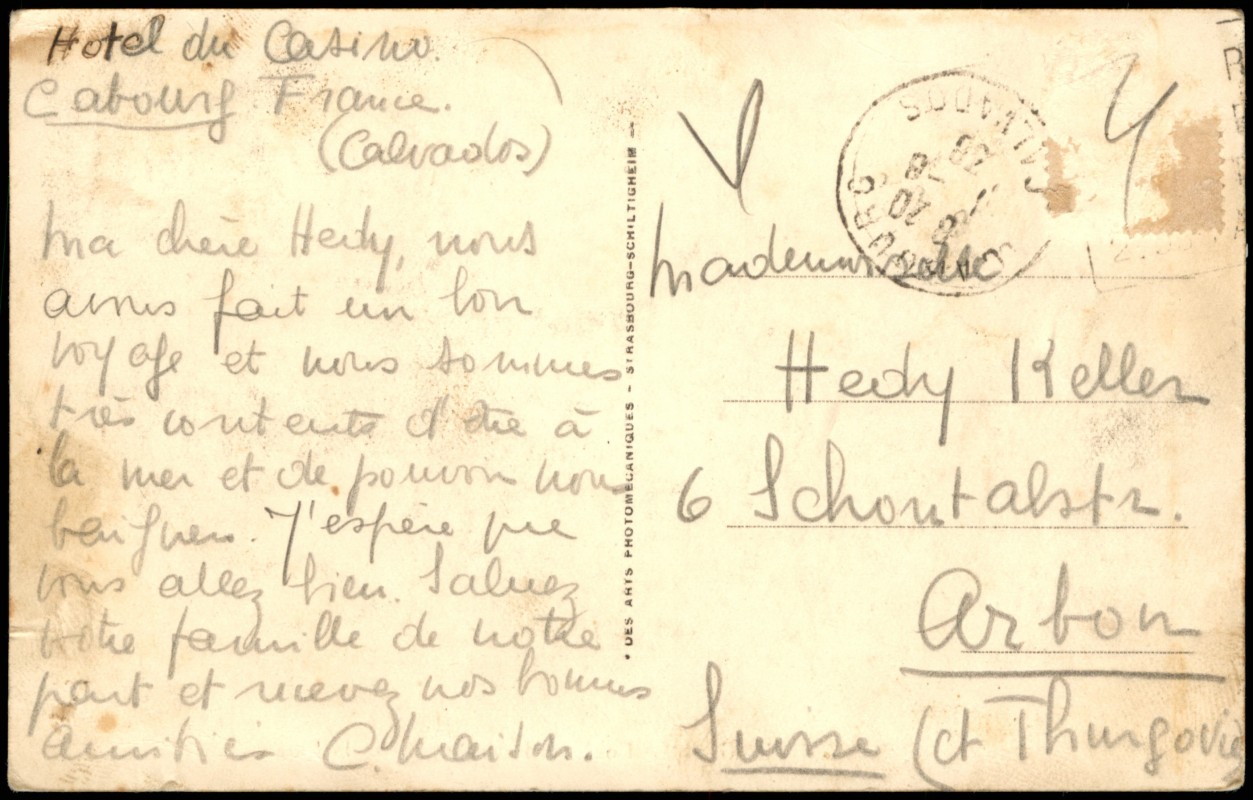 Hotel du Casino.
Cabourg France.
(Calvados)
Ma chère Hedy, nous
avons fait un bon
voyage et nous sommes
très contents d'être à
la mer et de pouvoir nous
baigner. J'espère que
vous allez bien. Saluez
votre famille de notre
part et recevez nos bonnes
amitiés C. Maison.
• DES ARTS PHOTOMECANIQUES - STRASBOURG-SCHILTIGHEIM -
CALVADOS
CABOURG
Mademoiselle
Hedy Keller
6 Schontalstr.
Arbon
Suisse (ct Thurgovie